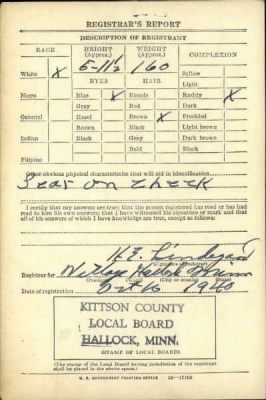 REGISTRAR'S REPORT
DESCRIPTION OF REGISTRANT
RACE HEIGHT (Approx.) WEIGHT (Approx.) COMPLEXION
5-11½ 160
White X Sallow
EYES HAIR Light
Negro Blue X Blonde Ruddy X
Gray Red Dark
Oriental Hazel Brown X Freckled
Brown Black Light brown
Indian Black Gray Dark brown
Bald Black
Filipino
Other obvious physical characteristics that will aid in identification
Scar on cheek
I certify that my answers are true; that the person registered has read or has had read to him his own answers; that I have witnessed his signature or mark and that all of his answers of which I have knowledge are true, except as follows:
Registrar for Village Hallock Minn
Date of registration Oct 16 1940
KITTSON COUNTY
LOCAL BOARD
HALLOCK, MINN.
(STAMP OF LOCAL BOARD)
(The stamp of the Local Board having jurisdiction of the registrant shall be placed in the above space.)
U. S. GOVERNMENT PRINTING OFFICE